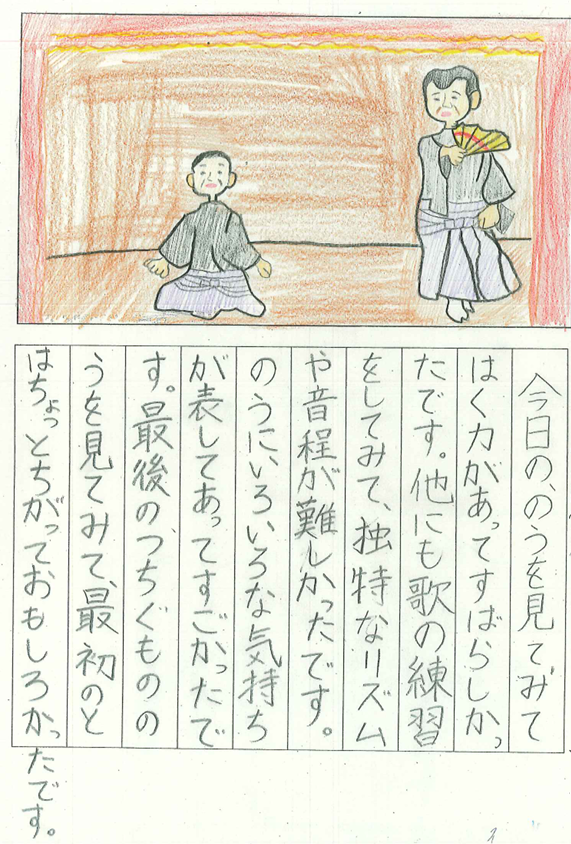 今日の、のうを見てみて
はく力があってすばらしかっ
たです。他にも歌の練習
をしてみて、独特なリズム
や音程が難しかったです。
のうにいろいろな気持ち
が表してあってすごかったで
す。最後のつちぐものの
うを見てみて、最初のと
はちょっとちがっておもしろかったです。